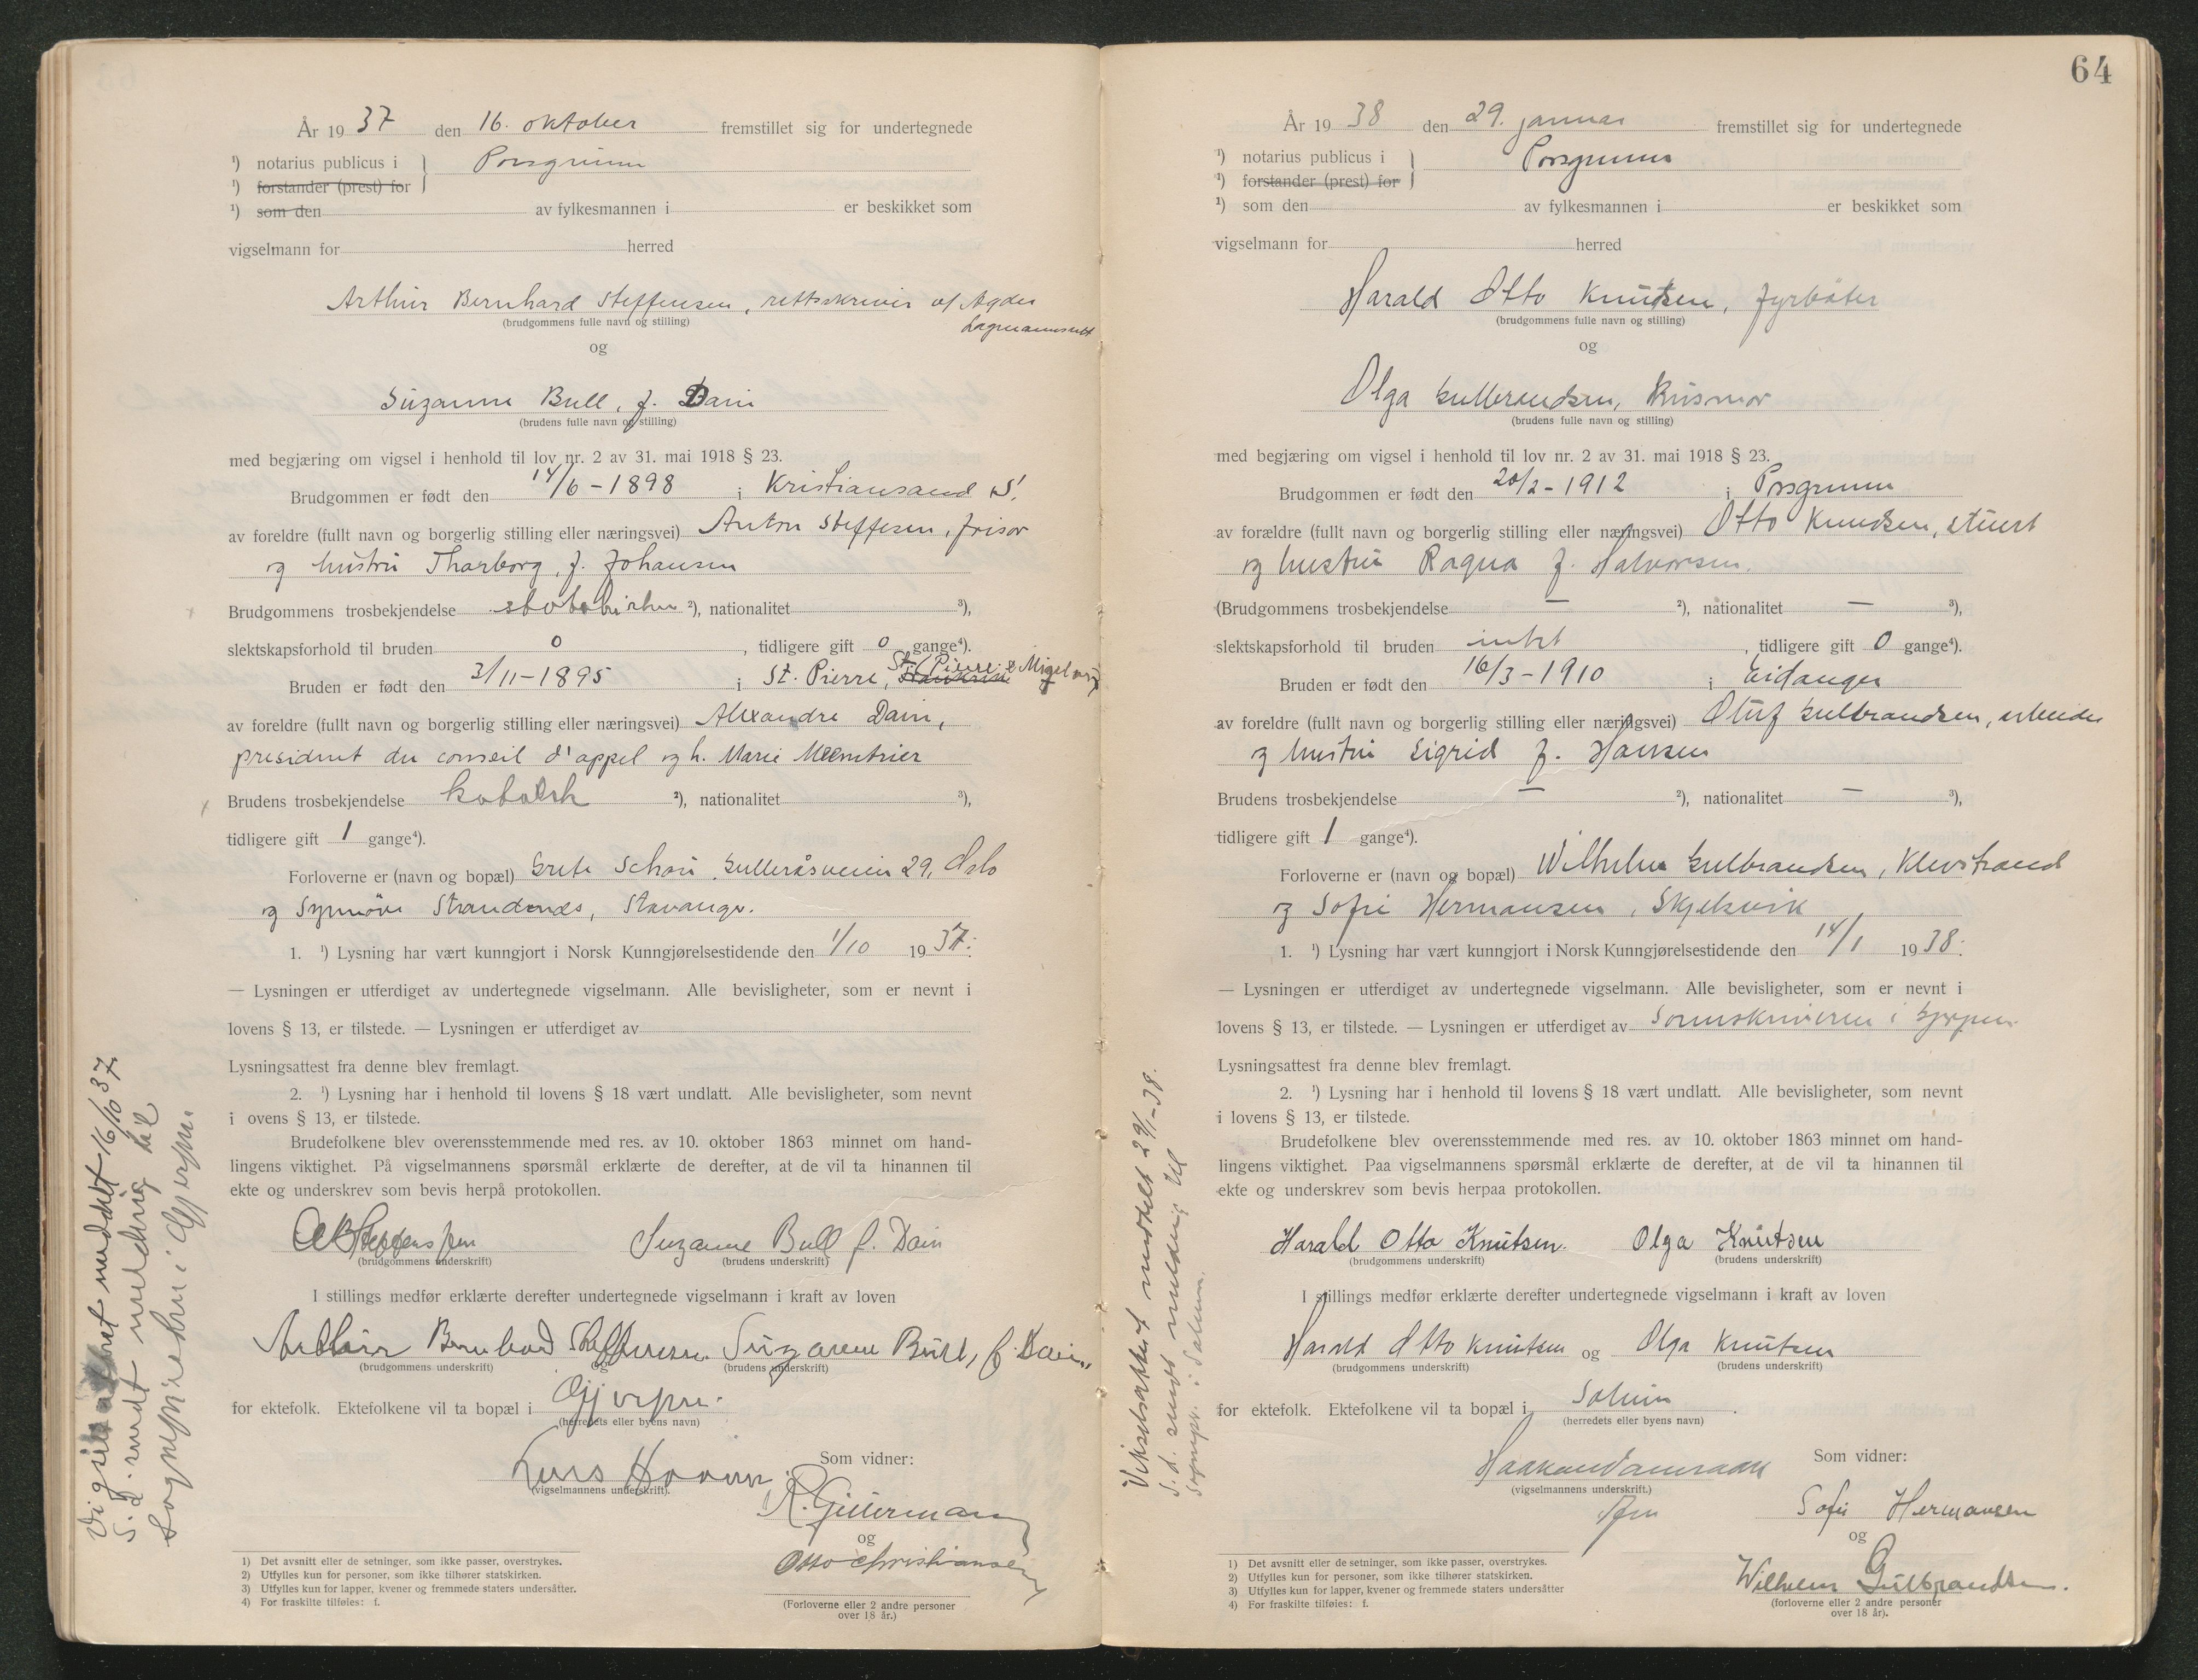 År 1937 den 16. oktober fremstillet sig for undertegnede
¹) notarius publicus i } Porsgrunn
¹) forstander (prest) for
¹) som den av fylkesmannen i er beskikket som
vigselmann for herred
Arthur Bernhard Steffensen, rettsskriver v/ Agder
Lagmannsrett
(brudgommens fulle navn og stilling)
og
Suzanne Bull, f. Dain
(brudens fulle navn og stilling)
med begjæring om vigsel i henhold til lov nr. 2 av 31. mai 1918 § 23.
Brudgommen er født den 14/6 - 1898 i Kristiansand S.
av foreldre (fullt navn og borgerlig stilling eller næringsvei) Anton Steffesen, frisør
og hustru Tharborg, f. Johansen
Brudgommens trosbekjendelse statskirken ²), nationalitet ³),
slektskapsforhold til bruden 0, tidligere gift 0 gange⁴).
St. Pierre & Miquelon
Bruden er født den 3/11 - 1895 i St. Pierre, Frankrike
av foreldre (fullt navn og borgerlig stilling eller næringsvei) Alexandre Dain,
president du conseil d'appel og h. Marie
Brudens trosbekjendelse katolsk ²), nationalitet ³),
tidligere gift 1 gange⁴).
Forloverne er (navn og bopæl) Grete Schou, Gulleråsveien 29, Oslo
og Synnøve Strandenæs, Stavanger.
1. ¹) Lysning har vært kunngjort i Norsk Kunngjørelsestidende den 1/10 1937.
— Lysningen er utferdiget av undertegnede vigselmann. Alle bevisligheter, som er nevnt i
lovens § 13, er tilstede. — Lysningen er utferdiget av
Lysningsattest fra denne blev fremlagt.
2. ¹) Lysning har i henhold til lovens § 18 vært undlatt. Alle bevisligheter, som nevnt
i ovens § 13, er tilstede.
Brudefolkene blev overensstemmende med res. av 10. oktober 1863 minnet om hand-
lingens viktighet. På vigselmannens spørsmål erklærte de derefter, at de vil ta hinannen til
ekte og underskrev som bevis herpå protokollen.
AB Steffensen Suzanne Bull f. Dain
(brudgommens underskrift) (brudens underskrift)
I stillings medfør erklærte derefter undertegnede vigselmann i kraft av loven
Arthur Bernhard Steffensen og Suzanne Bull, f. Dain,
(brudgommens underskrift) (brudens underskrift)
for ektefolk. Ektefolkene vil ta bopæl i Gjerpen.
(herredets eller byens navn)
Lars
(vigselmannens underskrift).
Som vidner:
og
Otto Christiansen
(Forloverne eller 2 andre personer
over 18 år.)
1) Det avsnitt eller de setninger, som ikke passer, overstrykes.
2) Utfylles kun for personer, som ikke tilhører statskirken.
3) Utfylles kun for lapper, kvener og fremmede staters undersåtter.
4) For fraskilte tilføies: f.
Vigselsattest meddelt 16/10 37
S. d. sendt melding til
Sognepresten i Gjerpen.
64
År 1938 den 29. januar fremstillet sig for undertegnede
¹) notarius publicus i } Porsgrunn
¹) forstander (prest) for
¹) som den av fylkesmannen i er beskikket som
vigselmann for herred
Harald Otto Knutsen, fyrbøter
(brudgommens fulle navn og stilling)
og
Olga Gulbrandsen, husmor
(brudens fulle navn og stilling)
med begjæring om vigsel i henhold til lov nr. 2 av 31. mai 1918 § 23.
Brudgommen er født den 20/2 - 1912 i Porsgrunn
av forældre (fullt navn og borgerlig stilling eller næringsvei) Otto Knudsen, stuert
og hustru Ragna f. Halvorsen.
(Brudgommens trosbekjendelse — ²), nationalitet — ³),
slektskapsforhold til bruden intet, tidligere gift 0 gange⁴).
Bruden er født den 16/3 - 1910 i Eidanger
av foreldre (fullt navn og borgerlig stilling eller næringsvei) Oluf Gulbrandsen, arbeider
og hustru Sigrid f. Hansen
Brudens trosbekjendelse — ²), nationalitet — ³),
tidligere gift 1 gange⁴).
Forloverne er (navn og bopæl) Wilhelm Gulbrandsen, Klevstrand
og Sofie Hermansen, Skjelsvik
1. ¹) Lysning har vært kunngjort i Norsk Kunngjørelsestidende den 14/1 1938.
— Lysningen er utferdiget av undertegnede vigselmann. Alle bevisligheter, som er nevnt i
lovens § 13, er tilstede. — Lysningen er utferdiget av Sorenskriveren i Gjerpen
Lysningsattest fra denne blev fremlagt.
2. ¹) Lysning har i henhold til lovens § 18 vært undlatt. Alle bevisligheter, som nevnt
i lovens § 13, er tilstede.
Brudefolkene blev overensstemmende med res. av 10. oktober 1863 minnet om hand-
lingens viktighet. Paa vigselmannens spørsmål erklærte de derefter, at de vil ta hinannen til
ekte og underskrev som bevis herpaa protokollen.
Harald Otto Knutsen. Olga Knutsen
(brudgommens underskrift) (brudens underskrift)
I stillings medfør erklærte derefter undertegnede vigselmann i kraft av loven
Harald Otto Knutsen og Olga Knutsen
(brudgommens underskrift) (brudens underskrift)
for ektefolk. Ektefolkene vil ta bopæl i Solum.
(herredets eller byens navn)
Haakon
(vigselmannens underskrift.)
Som vidner:
Sofie Hermansen
og
Wilhelm Gulbrandsen.
(forloverne eller 2 andre personer
over 18 år).
1) Det avsnitt eller de setninger, som ikke passer, overstrykes.
2) Utfylles kun for personer, som ikke tilhører statskirken.
3) Utfylles kun for lapper, kvener og fremmede staters undersåtter
4) For fraskilte tilføies: f.
Vikselsattest meddelt 29/1-38.
S. d. sendt melding til
sognepr. i Solum.